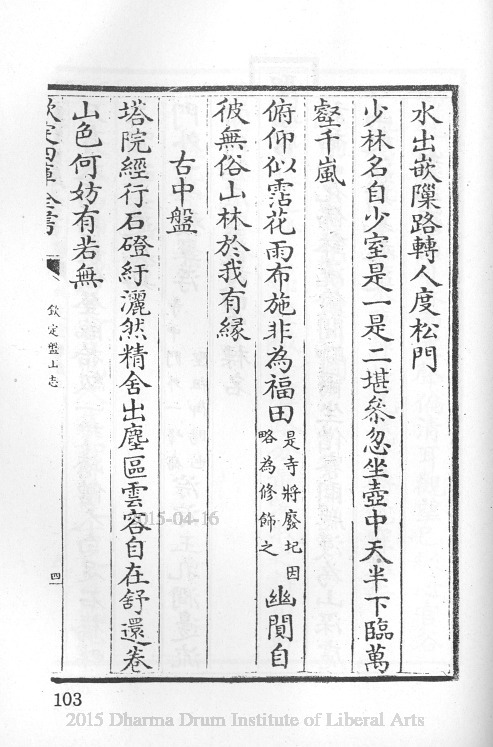 水出嵌隟路轉人度松門
少林名自少室是一是二堪叅忽坐壺中天半下臨萬
壑千嵐
俯仰似霑花雨布施非為福田是寺將廢圮因略為修飾之幽閒自
彼無俗山林於我有緣
古中盤
塔院經行石磴紆灑然精舍出塵區雲容自在舒還卷
山色何妨有若無
欽定四庫全書
欽定盤山志
四
103
2015-04-16
2015 Dharma Drum Institute of Liberal Arts